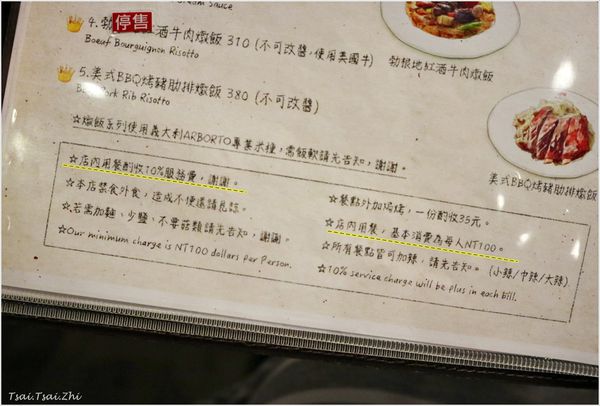 Cream Sauce
4. 勃 停售 酒牛肉燉飯 310 (不可改醬,使用美國牛)
Boeuf Bourguignon Risotto
勃根地紅酒牛肉燉飯
5. 美式BBQ烤豬肋排燉飯 380 (不可改醬)
Pork Rib Risotto
美式BBQ烤豬肋排燉飯
☆燉飯系列使用義大利ARBORTO專業米種,需飯軟請先告知,謝謝。
☆店內用餐酌收10%服務費,謝謝。
☆餐點外加焗烤,一份酌收35元。
☆本店禁食外食,造成不便還請見諒。
☆店內用餐,基本消費為每人NT100。
☆若需加麵、少鹽、不要菇類請先告知,謝謝。
☆所有餐點皆可加辣,請先告知。(小辣/中辣/大辣)
☆Our minimum charge is NT100 dollars per Person.
☆10% service charge will be plus in each bill.
Tsai.Tsai.Zhi